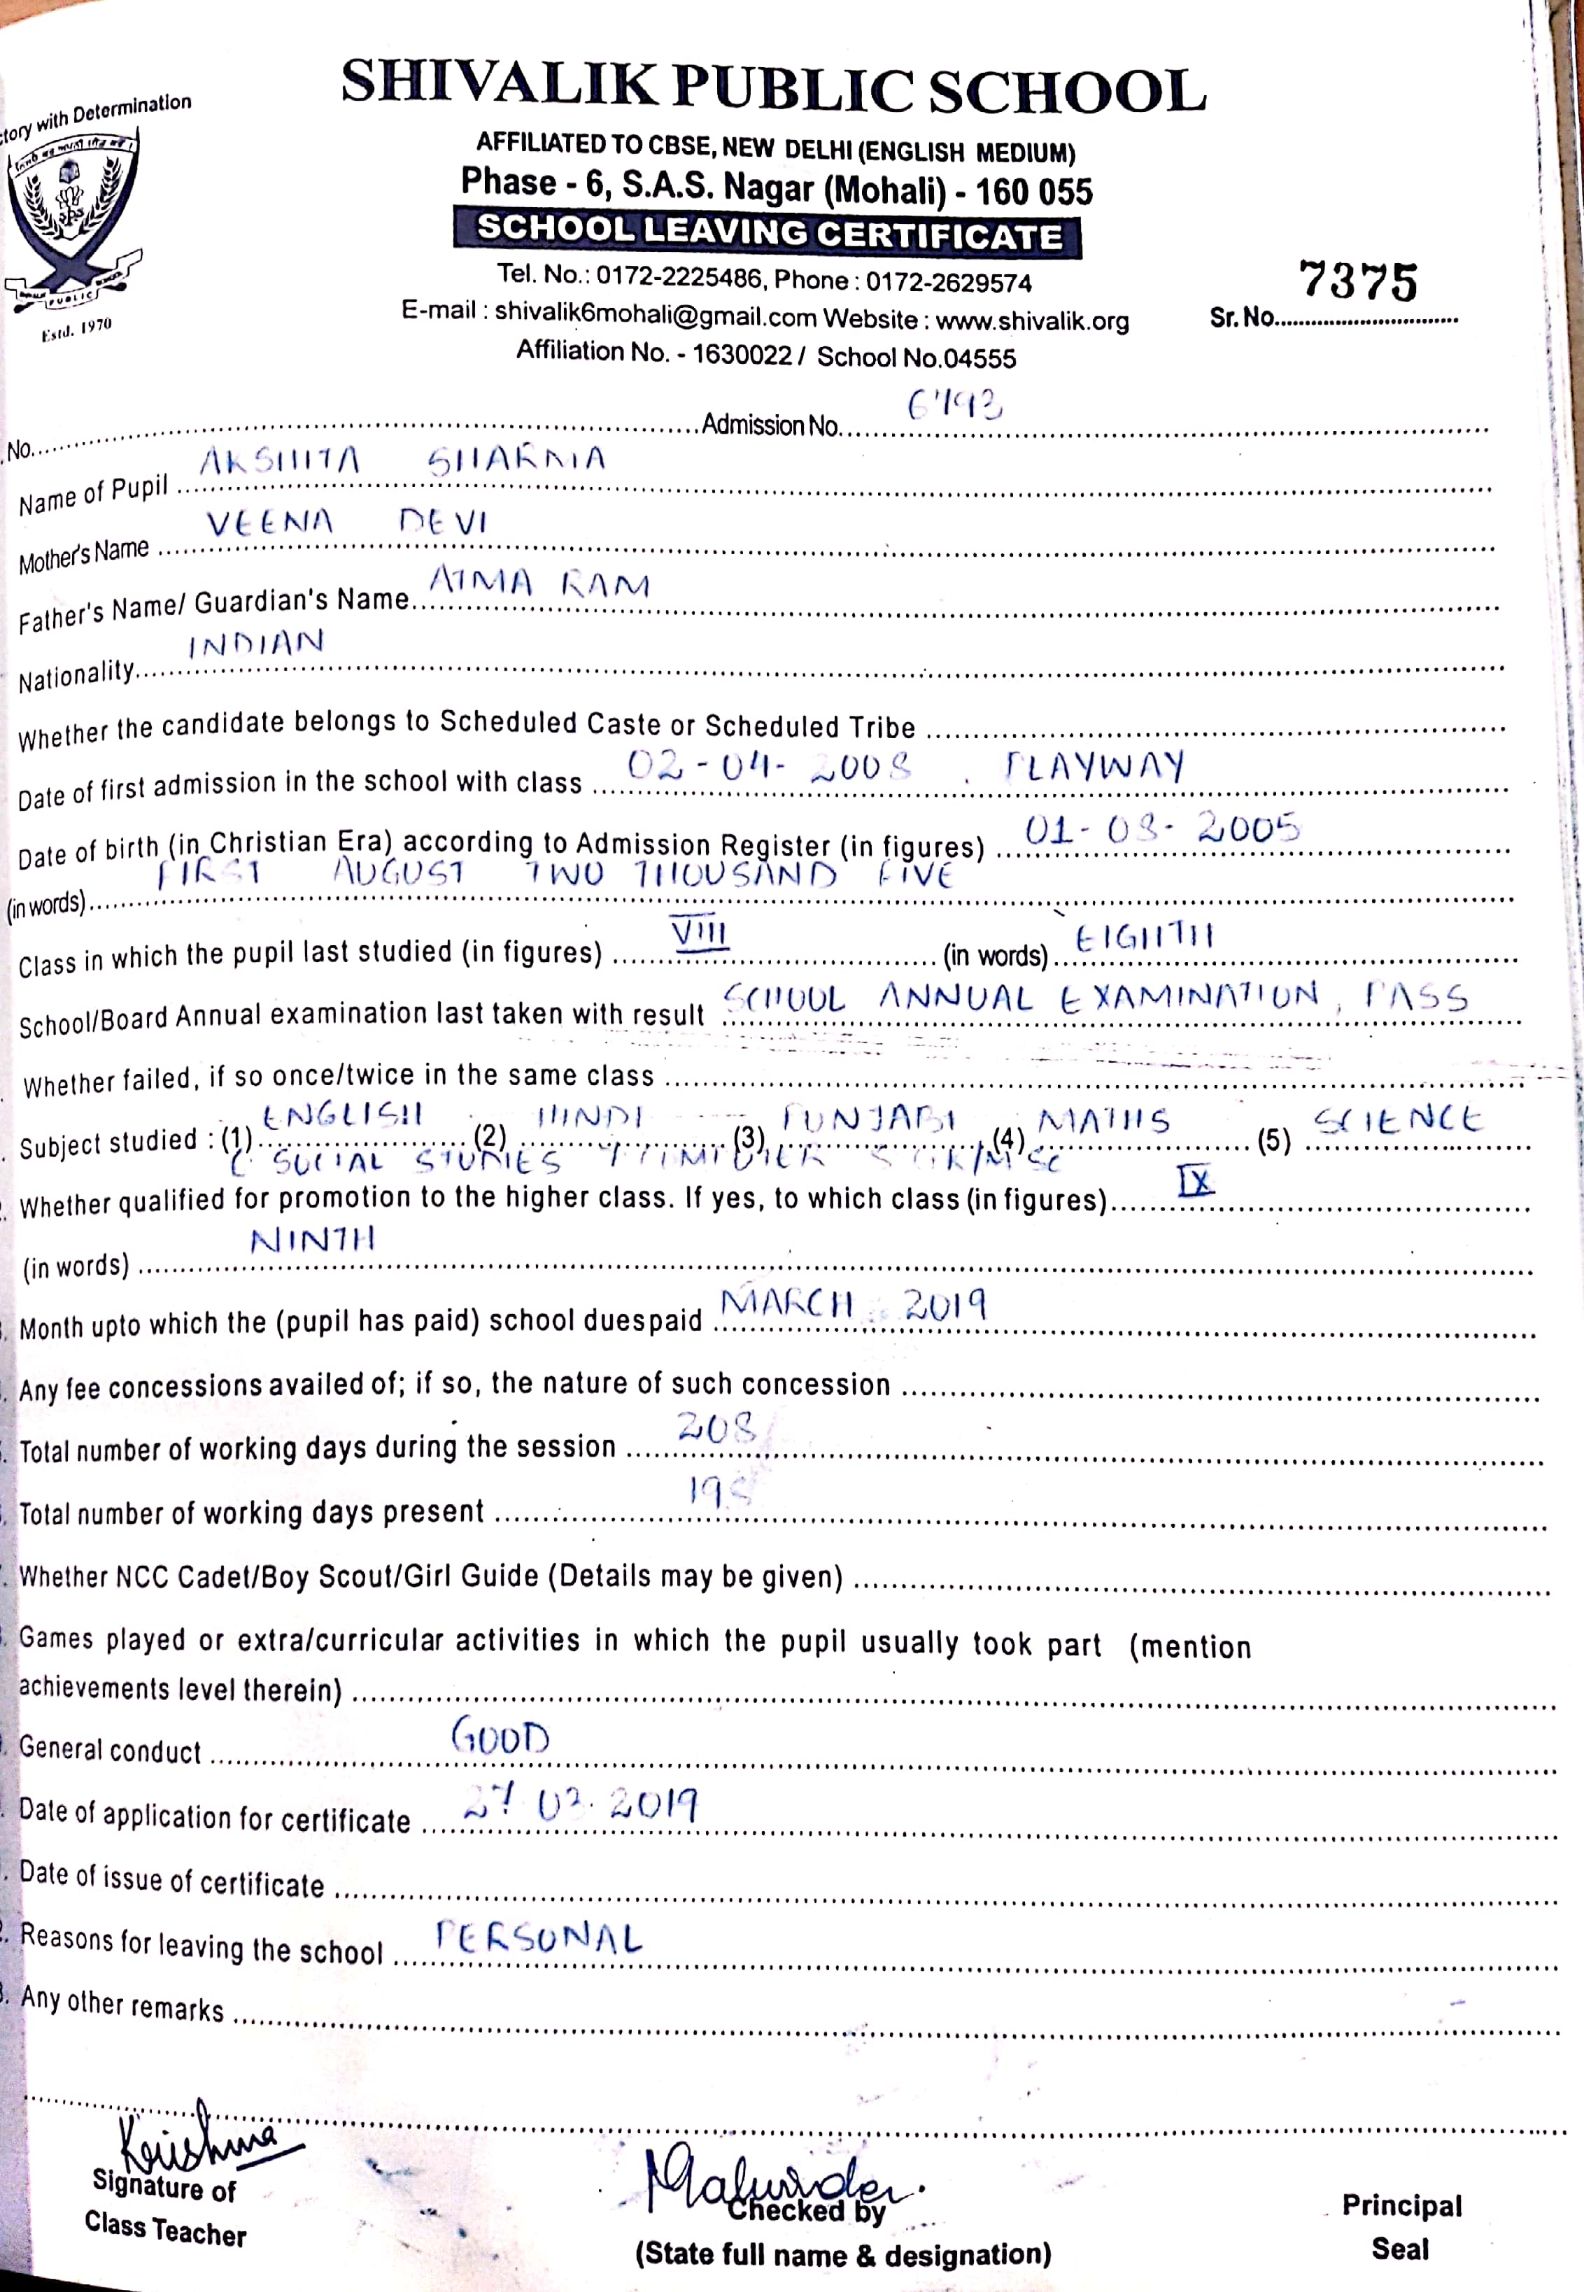 tory with Determination
SHIVALIK PUBLIC SCHOOL
AFFILIATED TO CBSE, NEW DELHI (ENGLISH MEDIUM)
Phase - 6, S.A.S. Nagar (Mohali) - 160 055
SCHOOL LEAVING CERTIFICATE
Tel. No.: 0172-2225486, Phone : 0172-2629574
E-mail : shivalik6mohali@gmail.com Website : www.shivalik.org
Affiliation No. - 1630022 / School No.04555
PUBLIC
Estd. 1970
7375
Sr. No.
No. Admission No. 6793
Name of Pupil AKSHITA SHARMA
Mother's Name VEENA DEVI
Father's Name/ Guardian's Name ATMA RAM
Nationality INDIAN
Whether the candidate belongs to Scheduled Caste or Scheduled Tribe
Date of first admission in the school with class 02-04-2008, PLAYWAY
Date of birth (in Christian Era) according to Admission Register (in figures) 01-08-2005
(in words) FIRST AUGUST TWO THOUSAND FIVE
Class in which the pupil last studied (in figures) VIII (in words) EIGHTH
School/Board Annual examination last taken with result SCHOOL ANNUAL EXAMINATION, PASS
Whether failed, if so once/twice in the same class
Subject studied : (1) ENGLISH (2) HINDI (3) PUNJABI (4) MATHS (5) SCIENCE
SOCIAL STUDIES
Whether qualified for promotion to the higher class. If yes, to which class (in figures) IX
(in words) NINTH
Month upto which the (pupil has paid) school duespaid MARCH 2019
Any fee concessions availed of; if so, the nature of such concession
Total number of working days during the session 208
Total number of working days present 198
Whether NCC Cadet/Boy Scout/Girl Guide (Details may be given)
Games played or extra/curricular activities in which the pupil usually took part (mention
achievements level therein)
General conduct GOOD
Date of application for certificate 27.03.2019
Date of issue of certificate
Reasons for leaving the school PERSONAL
Any other remarks
Krishma
Signature of
Class Teacher
Malwinder
Checked by
(State full name & designation)
Principal
Seal